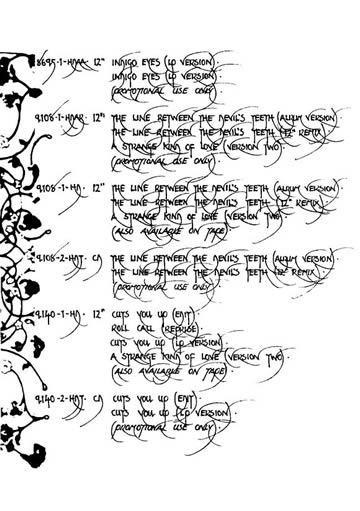 8695-1-HDAA· 12" INDIGO EYES (LP VERSION)·
INDIGO EYES (LP VERSION)·
(PROMOTIONAL USE ONLY)
9108-1-HDAB· 12" THE LINE BETWEEN THE DEVIL'S TEETH (ALBUM VERSION)·
THE LINE BETWEEN THE DEVIL'S TEETH (12" REMIX)
A STRANGE KIND OF LOVE (VERSION TWO)
(PROMOTIONAL USE ONLY)
9108-1-HD· 12" THE LINE BETWEEN THE DEVIL'S TEETH (ALBUM VERSION)·
THE LINE BETWEEN THE DEVIL'S TEETH (12" REMIX)·
A STRANGE KIND OF LOVE (VERSION TWO)
(ALSO AVAILABLE ON TAPE)
9108-2-HDT· CD THE LINE BETWEEN THE DEVIL'S TEETH (ALBUM VERSION)·
THE LINE BETWEEN THE DEVIL'S TEETH (12" REMIX)·
(PROMOTIONAL USE ONLY)
9140-1-HD· 12" CUTS YOU UP (EDIT)
ROLL CALL (REPRISE)
CUTS YOU UP (LP VERSION)
A STRANGE KIND OF LOVE (VERSION TWO)·
(ALSO AVAILABLE ON TAPE)
9140-2-HDT· CD CUTS YOU UP (EDIT)·
CUTS YOU UP (LP VERSION)
(PROMOTIONAL USE ONLY)·